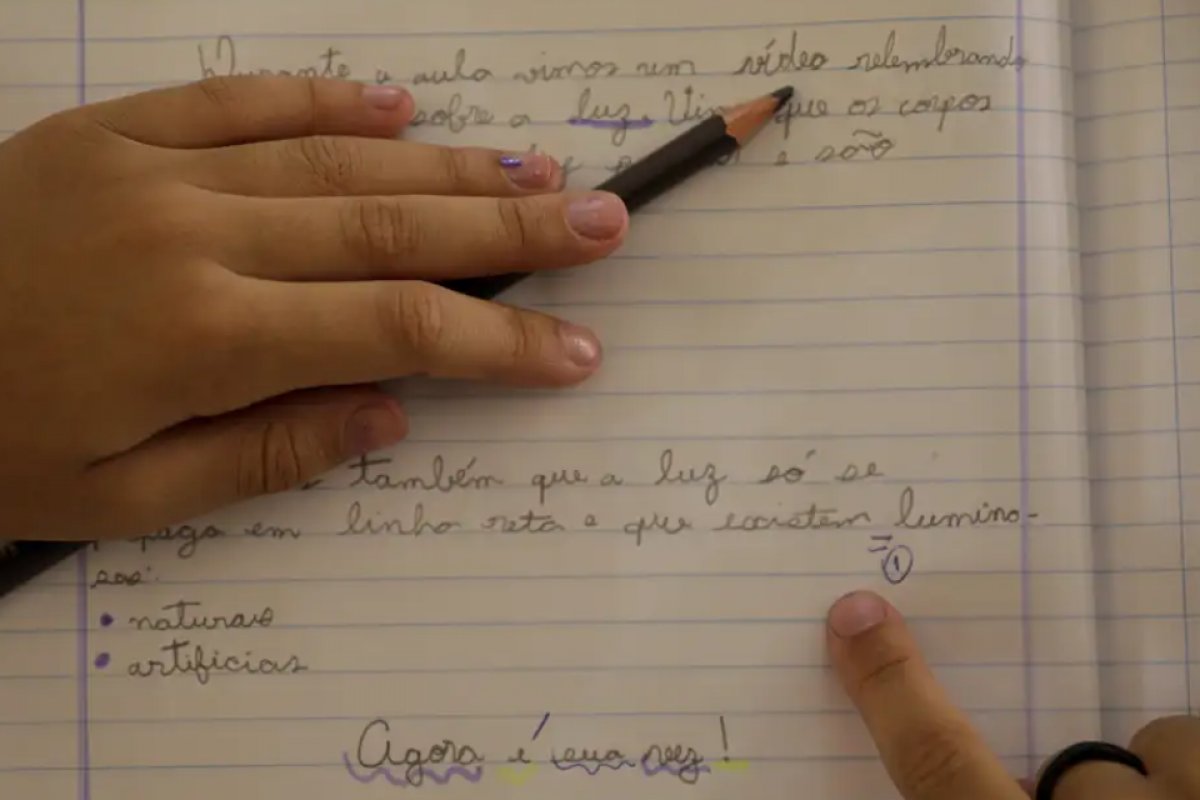 Durante a aula vimos um vídeo relembrando
sobre a luz. que os corpos
e são
também que a luz só se
em linha reta e que existem lumino-
sos:
• naturais
• artificias
Agora é sua vez!
1